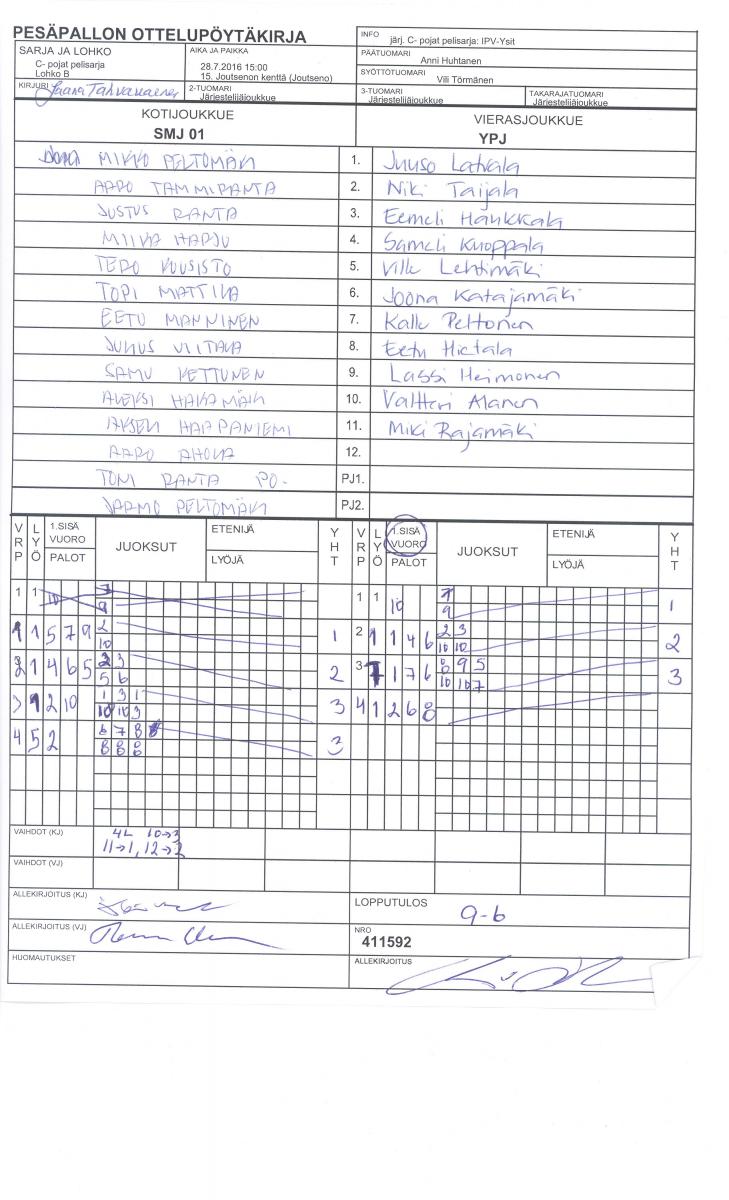 PESÄPALLON OTTELUPÖYTÄKIRJA
INFO järj. C- pojat pelisarja: IPV-Ysit
SARJA JA LOHKO
C- pojat pelisarja
Lohko B
AIKA JA PAIKKA
28.7.2016 15:00
15. Joutsenon kenttä (Joutseno)
PÄÄTUOMARI
Anni Huhtanen
SYÖTTÖTUOMARI
Vili Törmänen
KIRJURI Jaana
2-TUOMARI
Järjestelijäjoukkue
3-TUOMARI
Järjestelijäjoukkue
TAKARAJATUOMARI
Järjestelijäjoukkue
KOTIJOUKKUE
SMJ 01
VIERASJOUKKUE
YPJ
MIKKO PELTOMÄKI 1. Juuso Latvala
AARO TAMMIRANTA 2. Niki Taijala
JUSTUS RANTA 3. Eemeli Haukkala
MIIKA HARJU 4. Sameli Knoppala
TERO KUUSISTO 5. Ville Lehtimäki
TOPI MATTILA 6. Joona Katajamäki
EETU MANNINEN 7. Kalle Peltonen
JULIUS VIITALA 8. Eetu Hietala
SAMU KETTUNEN 9. Lassi Heimonen
ALEKSI HAKAMÄKI 10. Valtteri Alanen
IAKSELI HAAPANIEMI 11. Miki Rajamäki
AARO AHOLA 12.
TONI RANTA PO- PJ1.
JARMO PELTOMÄKI PJ2.
VRP LYÖ 1.SISÄ VUORO PALOT JUOKSUT ETENIJÄ LYÖJÄ YHT VRP LYÖ 1.SISÄ VUORO PALOT JUOKSUT ETENIJÄ LYÖJÄ YHT
1 1 10 7 1 1 10 7 1
9 9
1 1 5 7 9 2 1 2 1 1 4 6 2 3 2
10 10 10
2 1 4 6 5 2 3 2 3 1 1 7 6 8 9 5 3
5 6 10 10 7
3 1 2 10 1 3 1 3 4 1 2 6 8
10 10 3
4 5 2 6 7 8 3
8 8 8
VAIHDOT (KJ) 4L 10→3
11→1, 12→2
VAIHDOT (VJ)
ALLEKIRJOITUS (KJ)
LOPPUTULOS 9-6
ALLEKIRJOITUS (VJ)
NRO
411592
HUOMAUTUKSET
ALLEKIRJOITUS